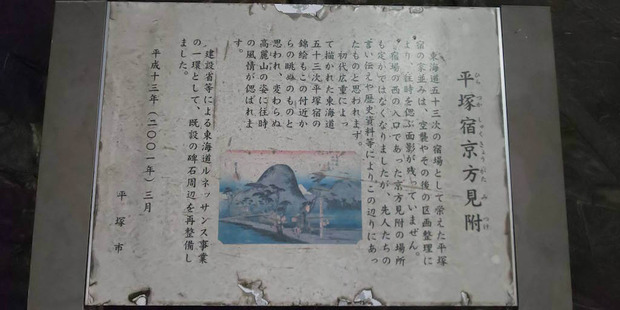 平塚宿京方見附
ひら つか しゅく きょう がた み つけ
東海道五十三次の宿場として栄えた平塚
宿の家並みは、空襲やその後の区画整理に
より、往時を偲ぶ面影が残っていません。
宿場の西の入口であった京方見附の場所
も定かではなくなりましたが、先人たちの
言い伝えや歴史資料等によりこの辺りにあっ
たものと思われます。
初代広重によっ
て描かれた東海道
五十三次平塚宿の
錦絵もこの付近か
らの眺めのものと
思われ、変わらぬ
高麗山の姿に往時
の風情が偲ばれま
す。
建設省等による東海道ルネッサンス事業
の一環として、既設の碑石周辺を再整備し
ました。
平成十三年(二〇〇一年)三月
平塚市